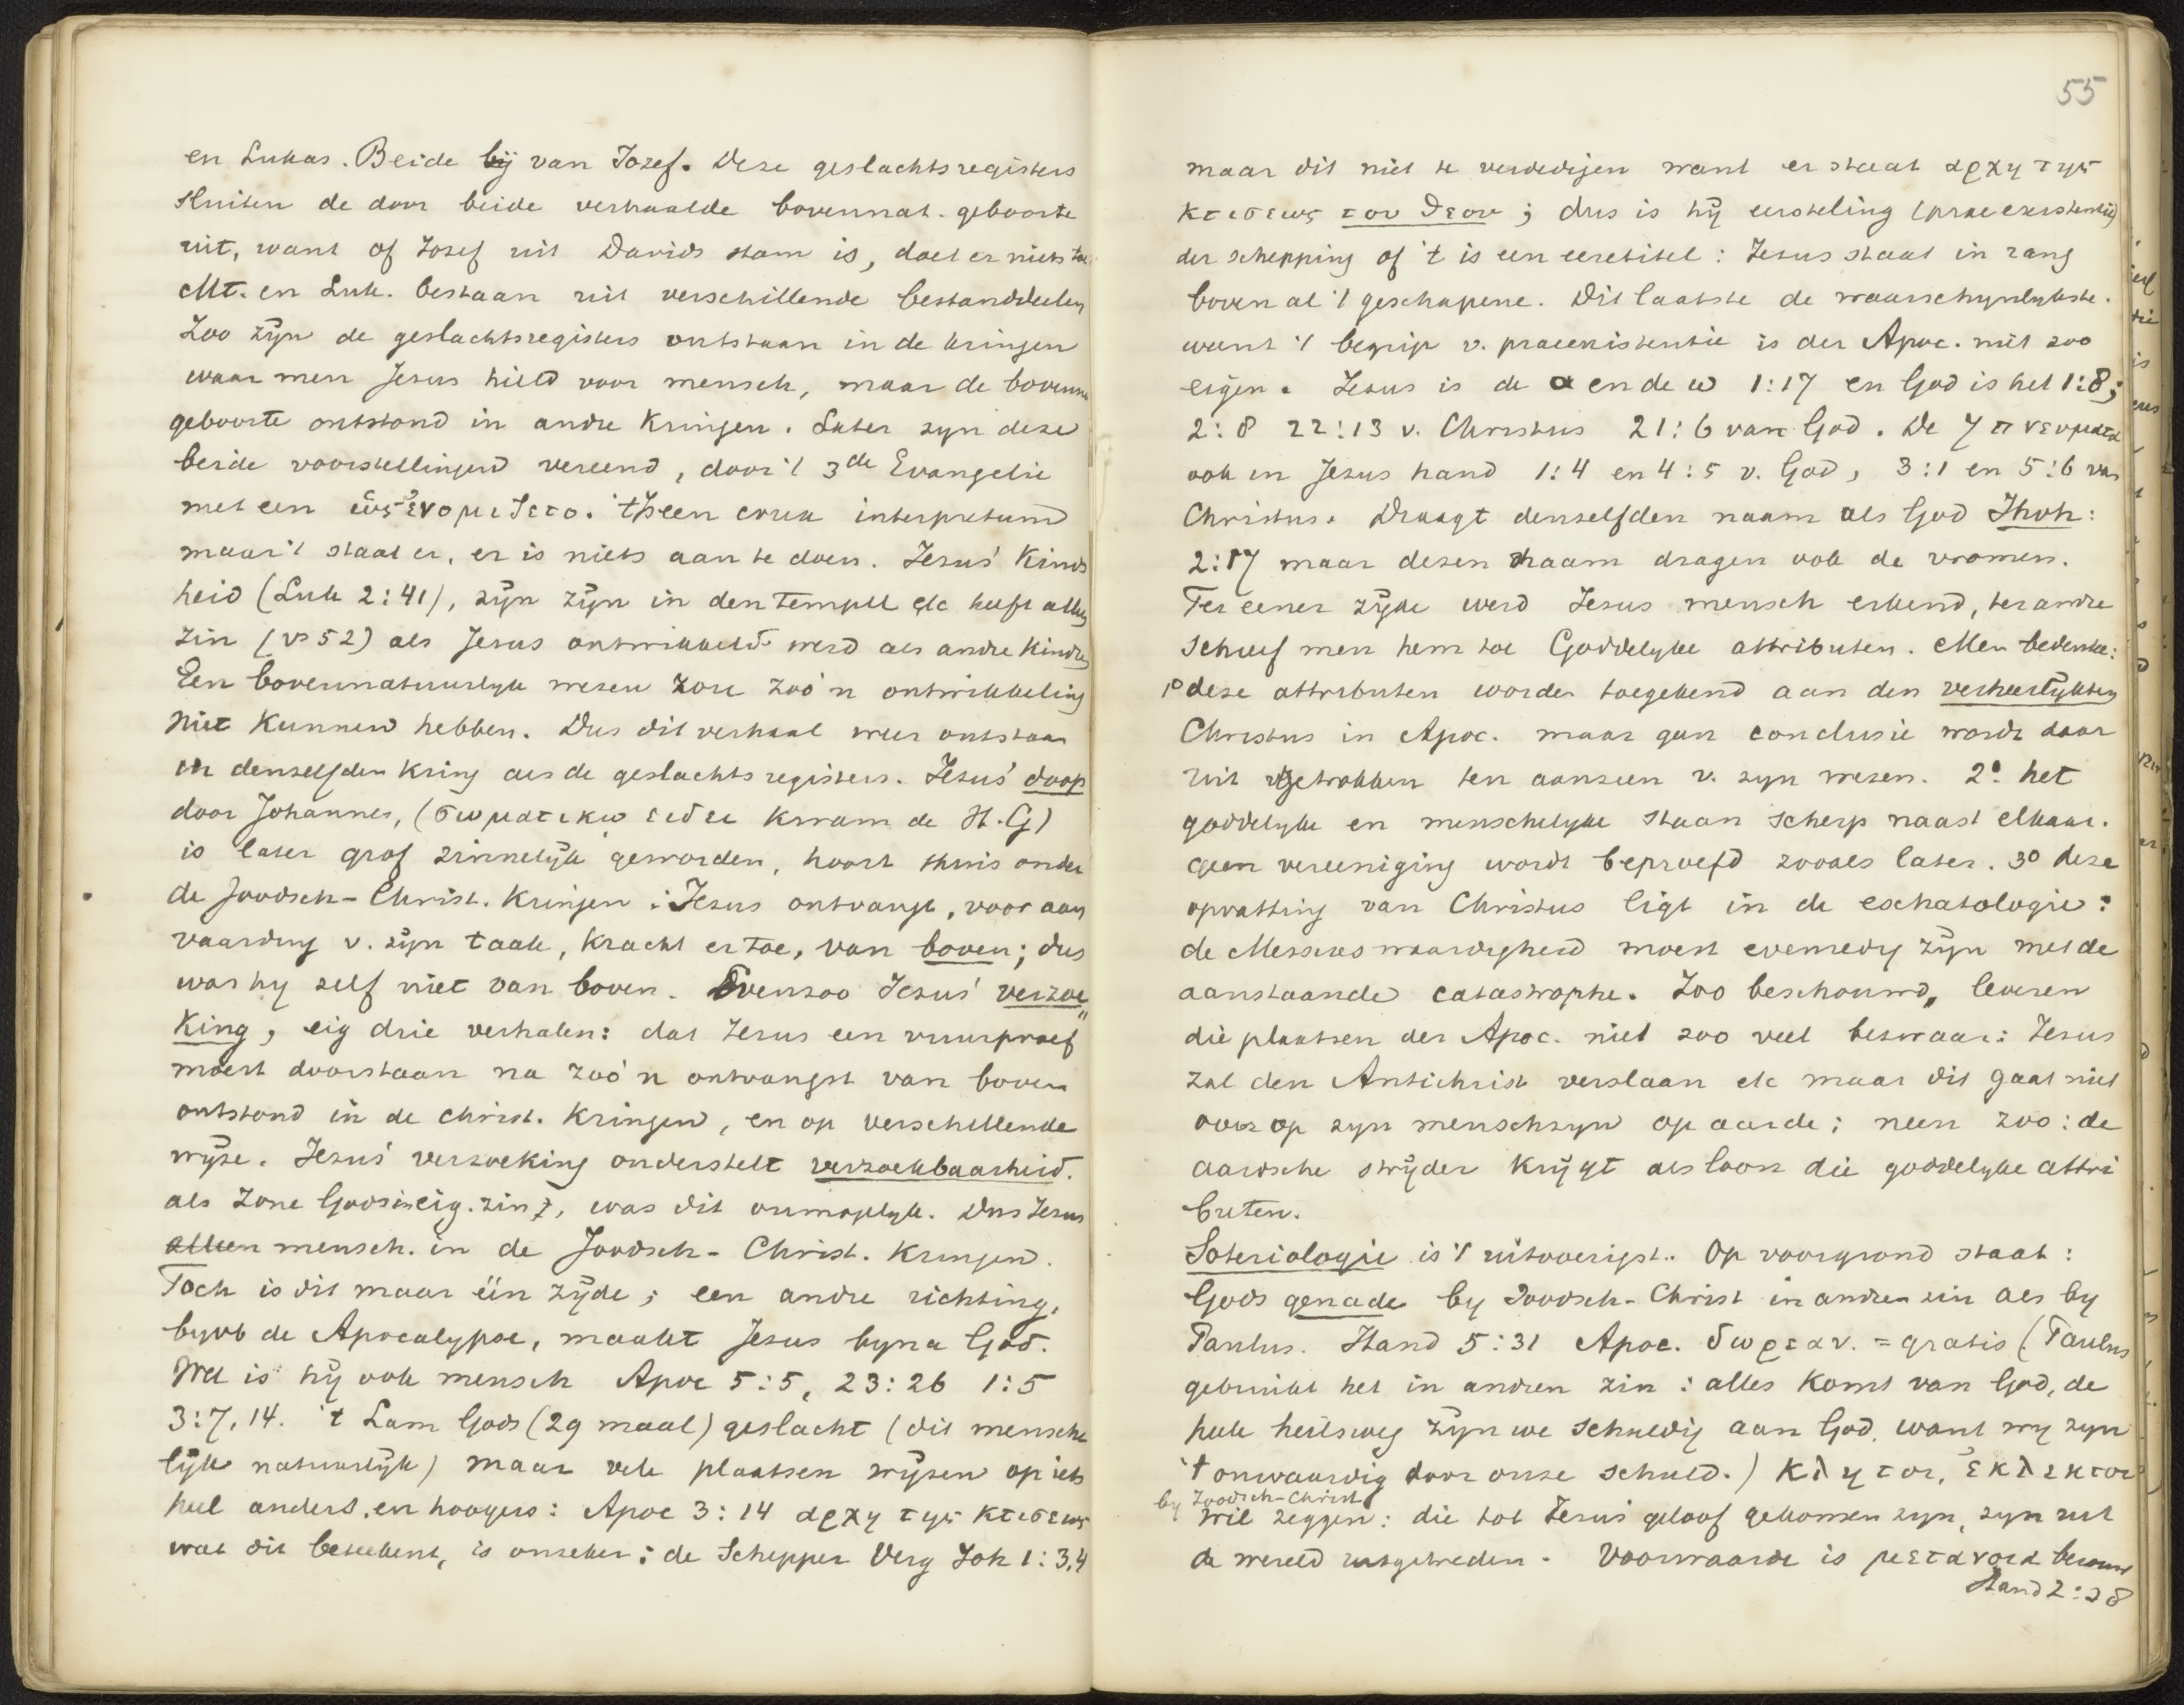 en Lukas. Beide bij van Jozef. Deze geslachtsregisters
sluiten de door beide verhaalde bovennat. geboorte
uit, want of Jozef uit Davids stam is, doet er niets toe
Mt. en Luk. bestaan uit verschillende bestanddeelen
Zoo zijn de geslachtsregisters ontstaan in de kringen
waar men Jezus hield voor mensch, maar de bovenna
geboorte ontstond in andre kringen. Later zyn deze
beide voorstellingen vereend, door 't 3de Evangelie
met een ὡς ἐνομιζετο. 't Is een crux interpretum
maar 't staat er, er is niets aan te doen. Jezus' Kinds
heid (Luk 2:41), zijn zijn in den tempel etc heeft alleen
zin (vs 52) als Jezus ontwikkeld werd als andre kindren
Een bovennatuurlyk wezen zou zoo'n ontwikkeling
niet kunnen hebben. Dus dit verhaal weer ontstaan
in denzelfden kring als de geslachtsregisters. Jezus' doop
door Johannes, (σωματικω ειδει kwam de H.G)
is later grof zinnelijk geworden, hoort thuis onder
de Joodsch-Christ. Kringen: Jezus ontvangt, voor aan
vaarding v. zijn taak, kracht er toe, van boven; dus
was hy zelf niet van boven. Evenzoo Jezus' verzoe„
king, eig drie verhalen: dat Jezus een vuurproef
moest doorstaan na zoo'n ontvangst van boven
ontstond in de christ. Kringen, en op verschillende
wijze. Jezus' verzoeking onderstelt verzoekbaarheid.
als Zone Gods in eig. zin, was dit onmogelyk. Dus Jezus
alleen mensch. in de Joodsch-Christ. kringen.
Toch is dit maar één zijde; een andre richting,
byvb de Apocalypse, maakt Jezus byna God.
Wel is hij ook mensch Apoc 5:5, 23:26 1:5
3:7,14. 't Lam Gods (29 maal) geslacht (dit mensche
lijk natuurlijk) maar vele plaatsen wijzen op iets
heel anders. en hoogers: Apoc 3:14 αρχη της κτισεως
wat dit beteekent, is onzeker: de Schepper Verg Joh 1:3,4
55
maar dit niet te verdedigen want er staat αρχη της
κτισεως του θεου; dus is hij eersteling (praeexistentie)
der schepping of 't is een eeretitel: Jezus staat in rang
boven al 't geschapene. Dit laatste de waarschynlykste.
want 't begrip v. praeexistentie is der Apoc. niet zoo
eigen. Jezus is de α en de ω 1:17 en God is het 1:8;
2:8 22:13 v. Christus 21:6 van God. De 7 πνευματα
ook in Jezus hand 1:4 en 4:5 v. God, 3:1 en 5:6 van
Christus. Draagt denzelfden naam als God Jhvh:
2:17 maar dezen naam dragen ook de vromen.
Ter eener zijde werd Jezus mensch erkend, ter andre
schreef men hem toe Goddelyke attributen. Men bedenke:
1o deze attributen worden toegekend aan den verheerlijkten
Christus in Apoc. maar geen conclusie wordt daar
uit getrokken ten aanzien v. zyn wezen. 2o het
goddelyke en menschelyke staan scherp naast elkaar.
geen vereeniging wordt beproefd zooals later. 3o deze
opvatting van Christus ligt in de eschatologie:
de Messias waardigheid moest evenredig zijn met de
aanstaande catastrophe. Zoo beschouwd, leveren
die plaatsen der Apoc. niet zoo veel bezwaar: Jezus
zal den Antichrist verslaan etc maar dit gaat niet
over op zyn menschzyn op aarde; neen zoo: de
aardsche strijder krijgt als loon die goddelyke attri
buten.
Soteriologie is 't uitvoerigst. Op voorgrond staat:
Gods genade by Joodsch-Christ in andren zin als by
Paulus. Hand 5:31 Apoc. δωρεαν. = gratis (Paulus
gebruikt het in andren zin: alles komt van God, de
heele heilsweg zijn we schuldig aan God, want wy zyn
't onwaardig door onze schuld.) κλητοι, ἐκλεκτοι
by Joodsch-Christ
wil zeggen: die tot Jezus' geloof gekomen zyn, zyn uit
de wereld uitgetreden. Voorwaarde is μετανοια berouw
Hand 2:38